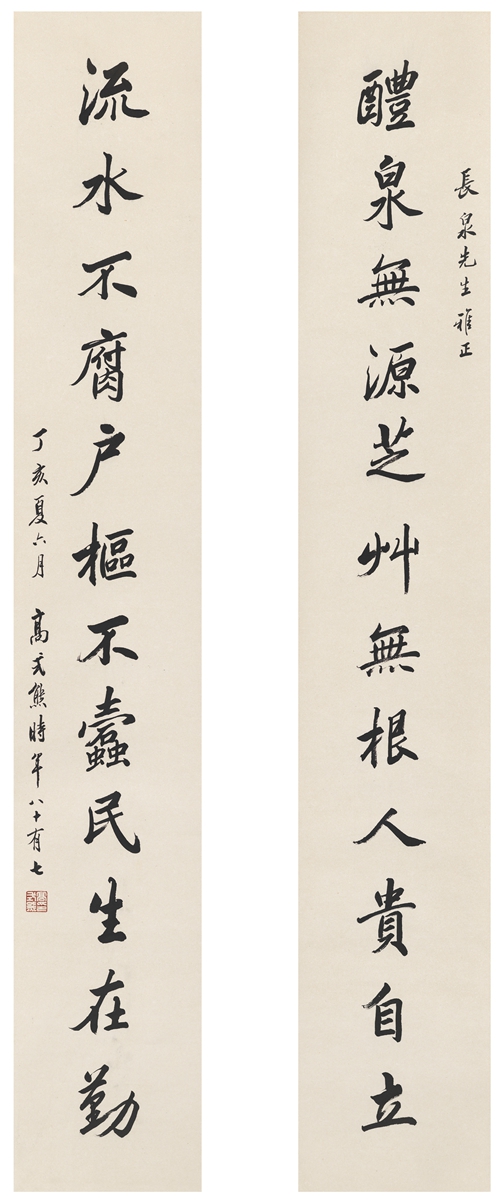 長泉先生雅正
醴泉無源芝艸無根人貴自立
流水不腐户樞不蠹民生在勤
丁亥夏六月 高式熊時年八十有七